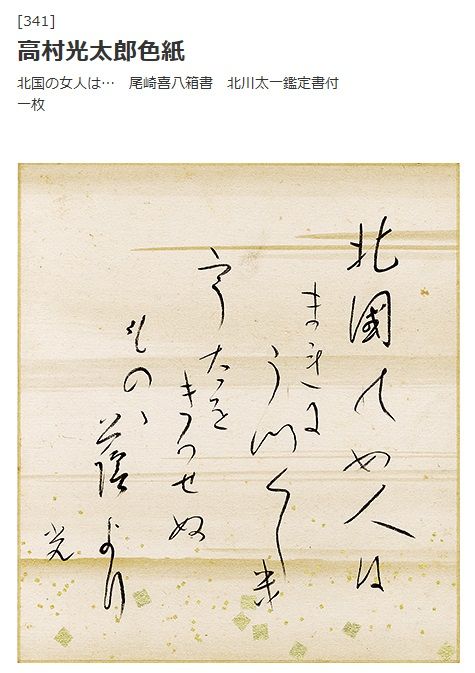 [341]
高村光太郎色紙
北国の女人は…　尾崎喜八箱書　北川太一鑑定書付
一枚
北國の女人は
まれに
うつくしき
うたを
きかせぬ
ものゝ
蔭より
光